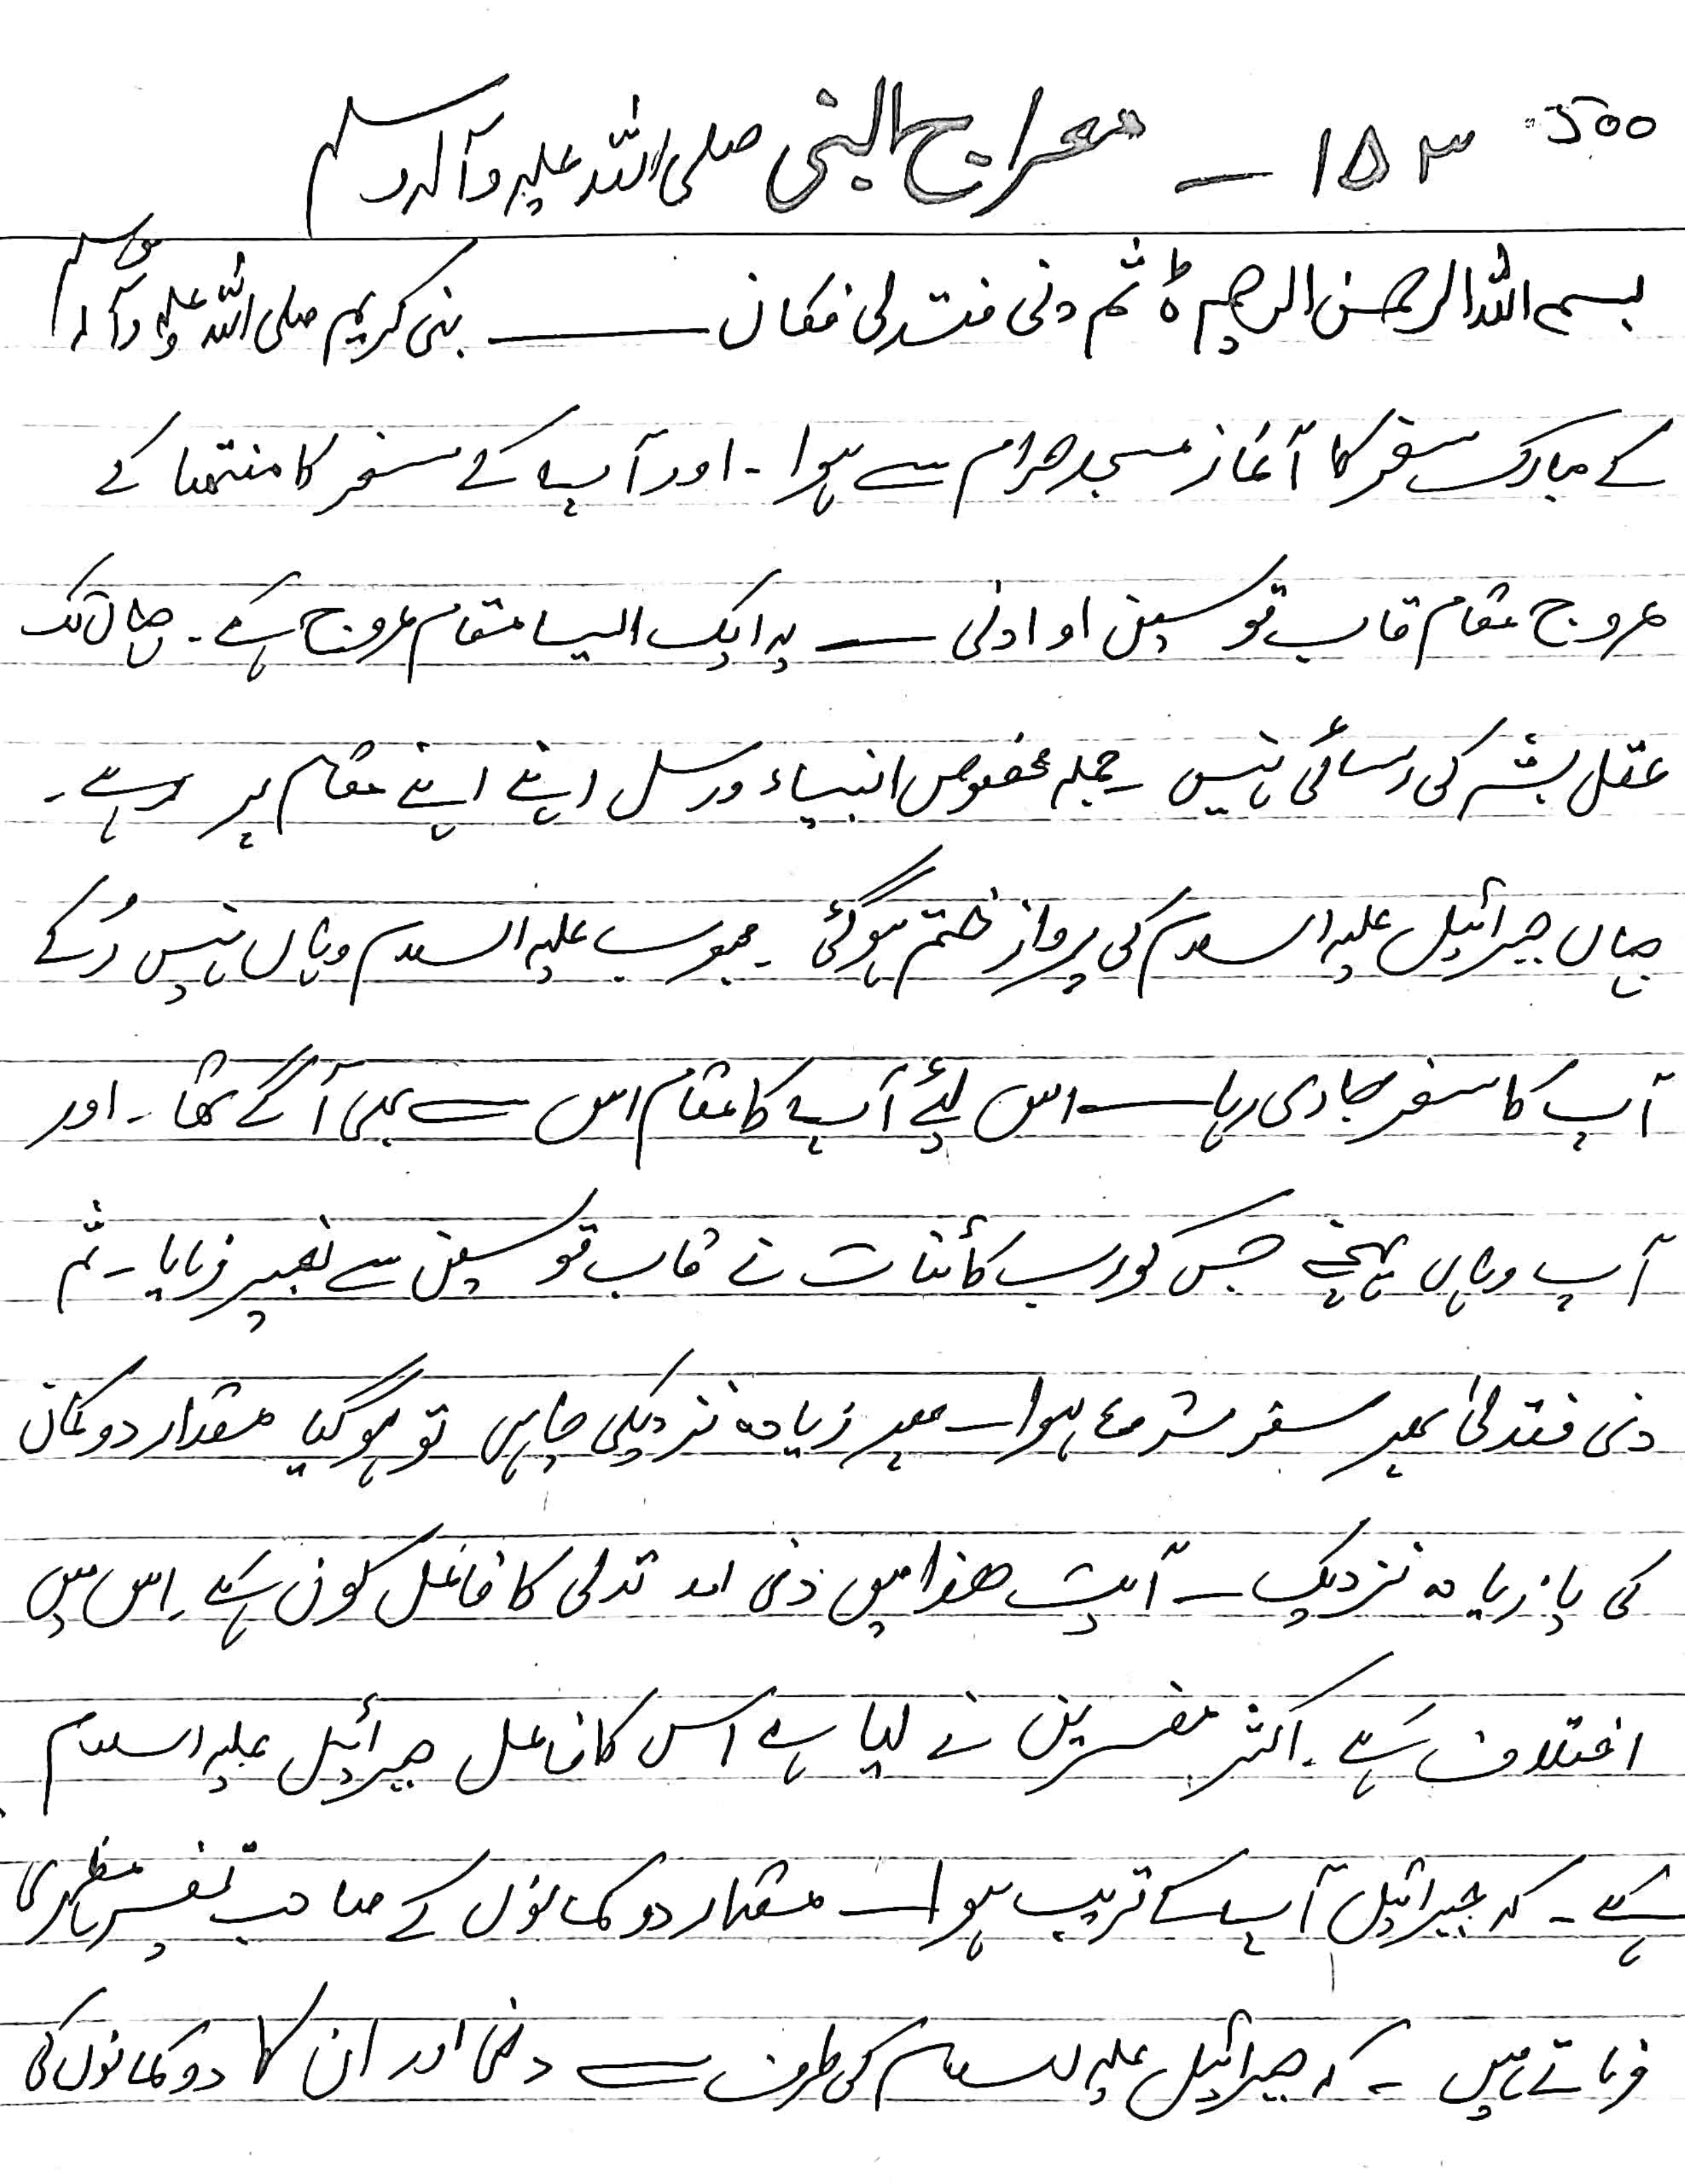 500
۱۵۳ ـ معراج النبی صلی اللہ علیہ وآلہ وسلم
بسم اللہ الرحمن الرحیم ہ ثم دنی فتدلی فکان ـــــ نبی کریم صلی اللہ علیہ وآلہ وسلم
کے مبارک سفر کا آغاز مسجد حرام سے ہوا ۔ اور آپ کے سفر کا منتھا کے
عروج مقام قاب قوسین او ادنی ــــ یہ ایک ایسا مقام عروج ہے ۔ جہاں تک
عقل بشر کی رسائی نہیں ۔ جملہ مخصوص انبیاء ورسل اپنے اپنے مقام پر رہے ۔
جہاں جبرائیل علیہ السلام کی پرواز ختم ہوگئی ۔ محبوب علیہ السلام وہاں نہیں رُکے
آپ کا سفر جاری رہا ــ اس لئے آپ کا مقام اس سے بھی آگے تھا ۔ اور
آپ وہاں پہنچے جس کو رب کائنات نے قاب قوسین سے تعبیر فرمایا ۔ ثم
دنی فتدلیٰ پھر سفر شروع ہوا ــ پھر زیادہ نزدیکی چاہی تو ہوگیا مقدار دو کمان
کی یا زیادہ نزدیک ــ آیت ھذا میں دنی اور تدلی کا فاعل کون ہے ۔ اس میں
اختلاف ہے ۔ اکثر مفسرین نے لیا ہے اس کا فاعل جبرائیل علیہ السلام
ہے ۔ کہ جبرائیل آپ کے قریب ہوا ــ مقدار دو کمانوں کے صاحب تفسیر مظہری
فرماتے ہیں ۔ کہ جبرائیل علیہ السلام کی طرف سے دنی اور ان کا دو کمانوں کی